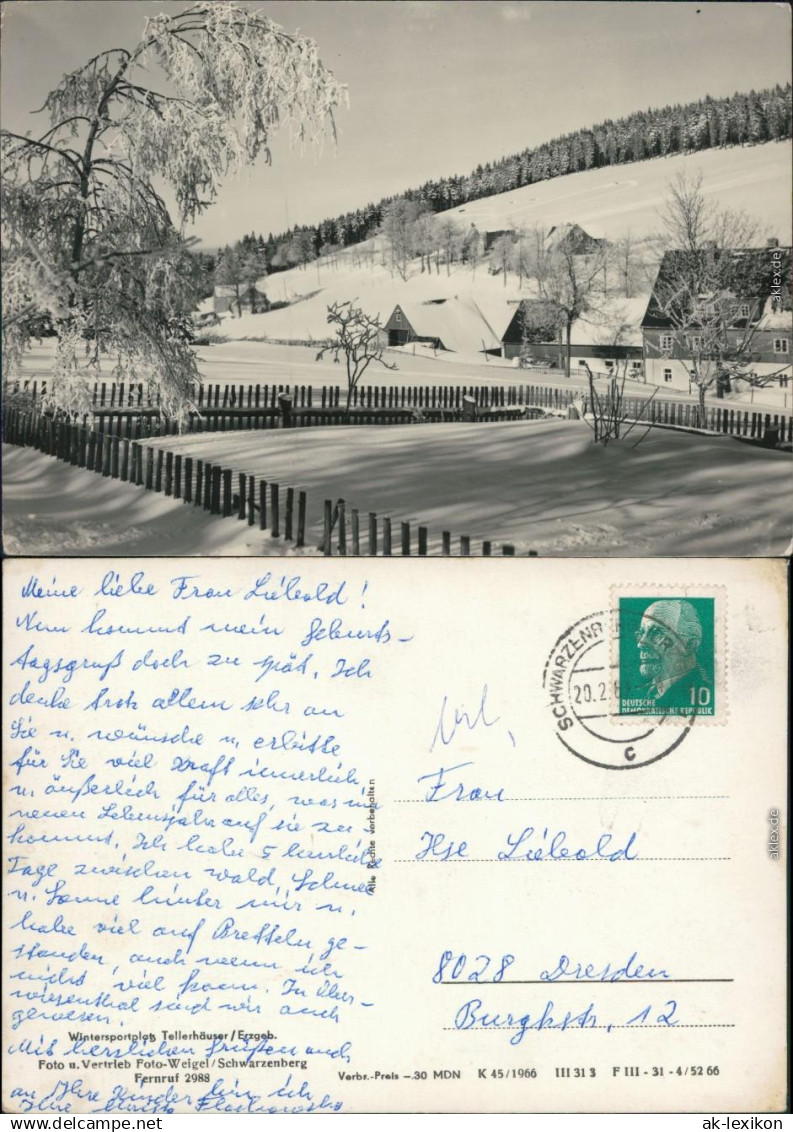 Meine liebe Frau Liebold!
Nun kommt mein Geburts-
tagsgruß doch zu spät. Ich
denke trotz allem sehr an
Sie u. wünsche u. erbitte
für Sie viel Kraft innerlich
u. äußerlich für alles, was im
neuen Lebensjahr auf sie zu-
kommt. Ich habe 5 herrliche
Tage zwischen Wald, Schnee
u. Sonne hinter mir u.
habe viel auf Bretteln ge-
standen, auch wenn ich
nicht viel kann. In Ober-
wiesenthal sind wir auch
gewesen.
Mit herzlichen Grüßen auch
an Ihre Kinder bin ich
Ihre
Wintersportplatz Tellerhäuser/Erzgeb.
Foto u. Vertrieb Foto-Weigel/Schwarzenberg
Fernruf 2988
Alle Rechte vorbehalten
SCHWARZENB
20.2.6
c
10
DEUTSCHE
DEMOKRATISCHE REPUBLIK
Frau
Ilse Liebold
8028 Dresden
Burgkstr. 12
Verbr.-Preis –.30 MDN K 45/1966 III 31 3 F III - 31 - 4/52 66
ak-lexikon.de
ak-lexikon.de
aklex.de
ak-lexikon.com